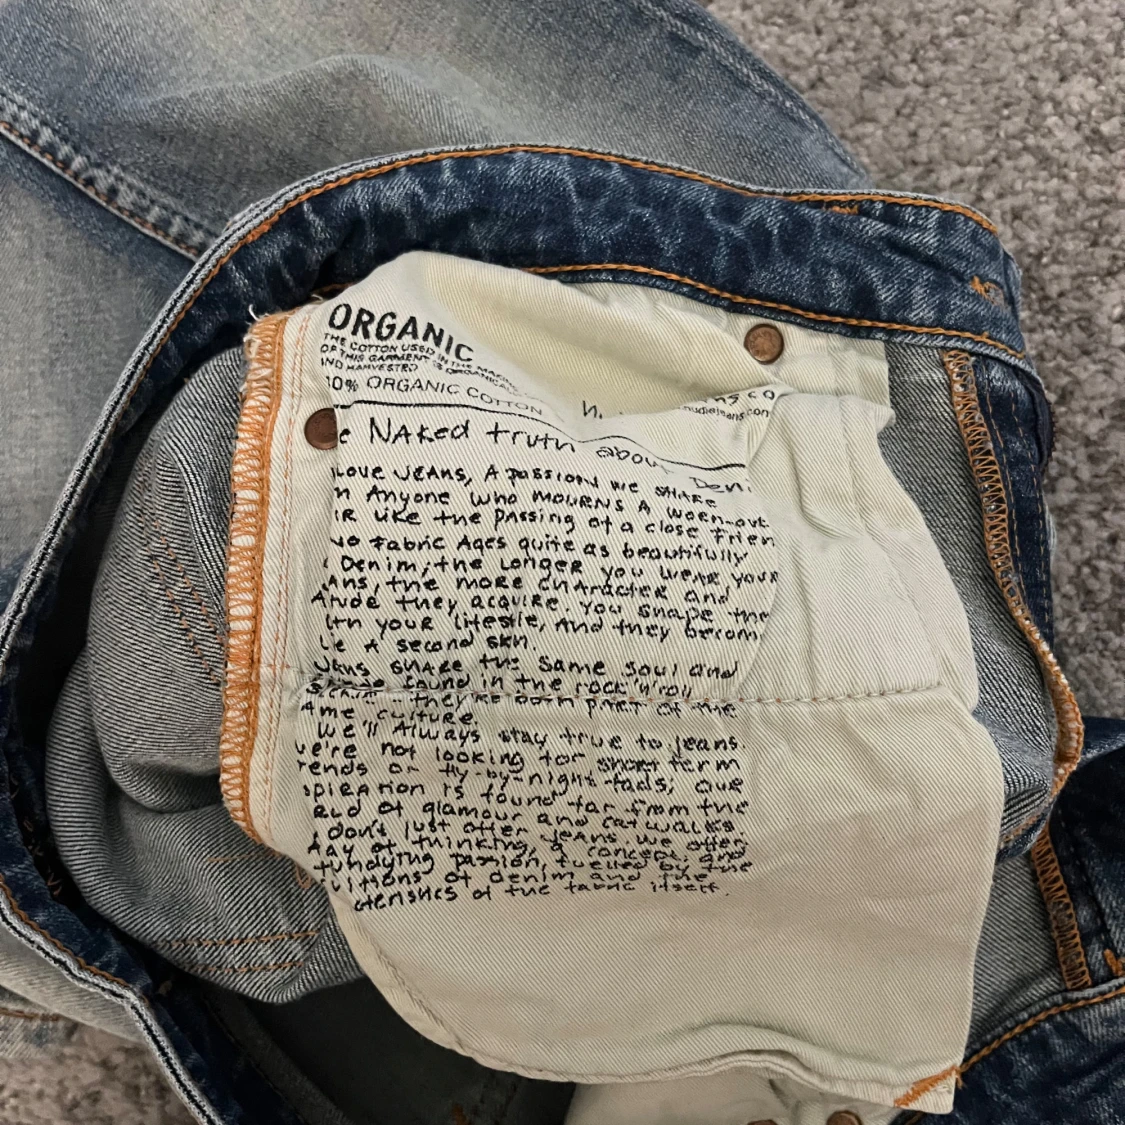 ORGANIC
THE COTTON USED IN THE MAKING
OF THIS GARMENT IS ORGANICAL
ND HARVESTED
0% ORGANIC COTTON
nudiejeans.com
e NAKed truth about Deni
LOVE JEANS, A PASSION WE SHARE
h Anyone who MOURNS A WORN-out
IR LIKE the PASSING of a close frien
No Fabric Ages quite as beautifully
Denim; the Longer you wear your
ANS, the more CHARACTER and
they acquire. you shape the
ith your lifestle, And they becom
A second skn.
Jeans SHARE the same soul and
found in the rock'n'roll
they're both part of the
Ame culture.
We'll Always stay true to jeans.
we're not looking for short term
rends or fly-by-night-fads; our
spiration is found far from the
of glamour and catwalks.
don't just offer jeans. we offer
Ay of thinking, a concept, and
passion, fuelled by the
of denim and the
of the fabric itself.